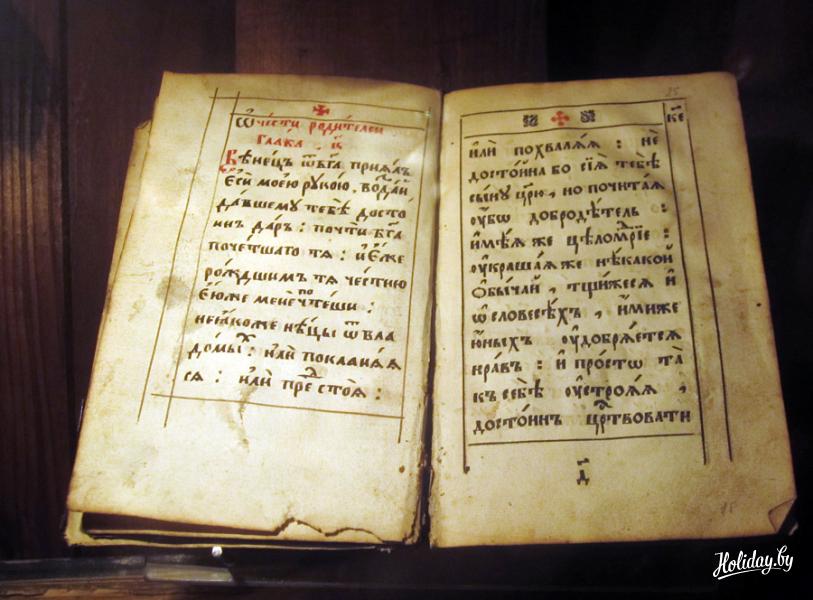 Ѡ чести родителеи
Глава . ц҃
Вѣнецъ ѿ бг҃а приялъ
еси моею рукою, воздаи
давшему тебѣ досто
инъ даръ : почти бг҃а
почетшаго тя : и еже
рождшимъ тя честию
еюже мене чтеши :
не якоже нѣцы ѿвла
домы : или покланяя
ся : или предстоя :
25
к҃е
или похваляя : не
достоина бо сия тебѣ
сыну цр҃ю , но почитая
ѹбѡ добродѣтель :
имѣя же цѣломꙋдрие :
ѹкрашая же нѣкакои
обычаи , тщижеся и
ѡ словесѣхъ , имиже
иныхъ ѹдобряется
нравъ : и простѡ та
къ себѣ ѹстрояя ,
достоинъ црⷭ҇твовати
д҃
18
Holiday.by